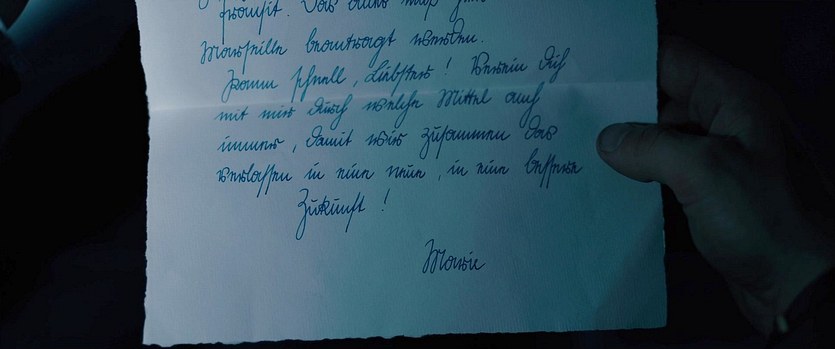 Transit. Das alles muß
Marseille beantragt werden.
Komm schnell, Liebster! Verein Dich
mit mir durch welche Mittel auch
immer, damit wir zusammen das
verlassen in eine neue, in eine bessere
Zukunft!
Marie